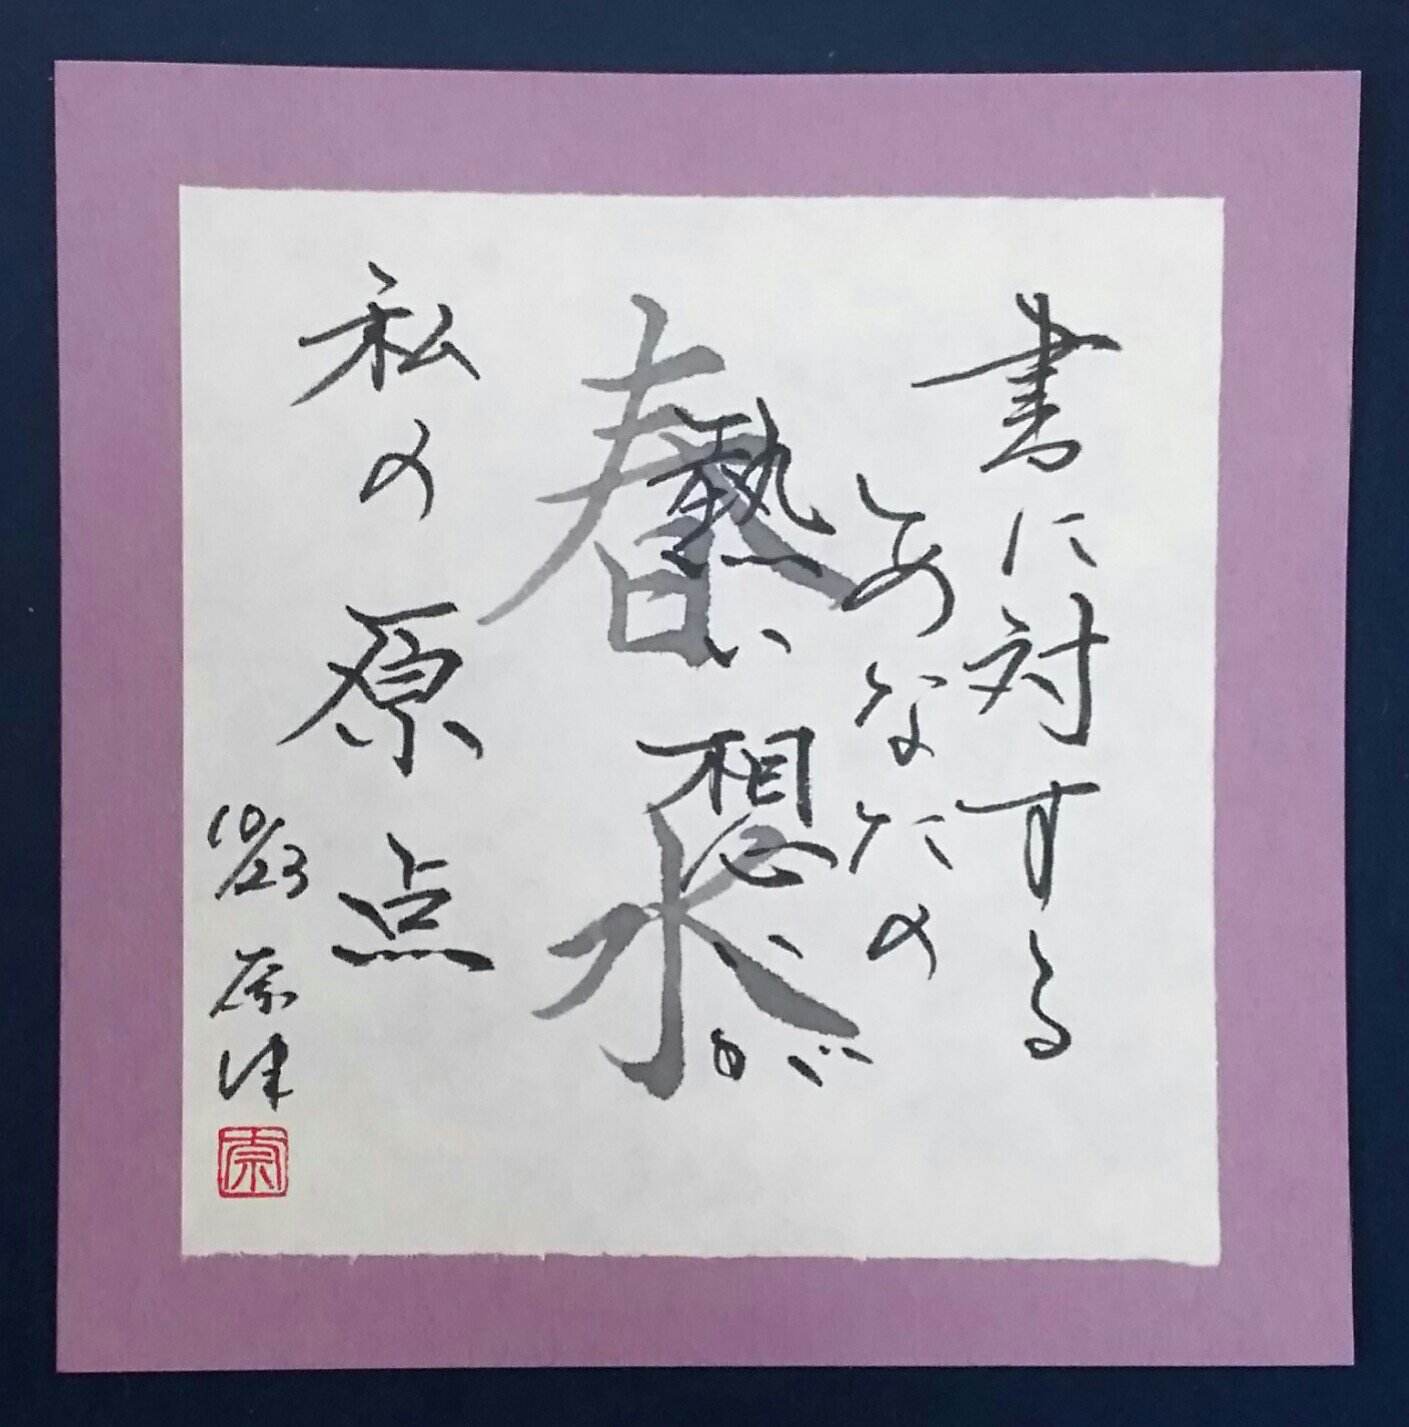 書に対する
あなたの
熱い想いが
春水
私の原点
10/23